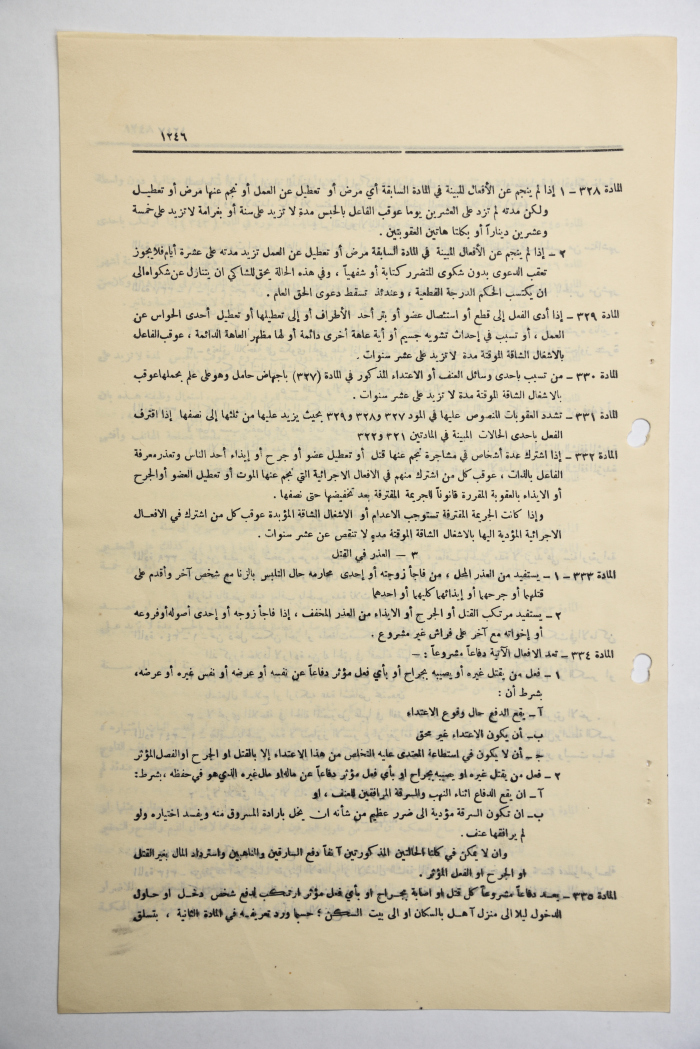 ١٢٤٦
المادة ٣٢٨ – ١ إذا لم ينجم عن الأفعال المبينة في المادة السابقة أي مرض أو تعطيل عن العمل أو نجم عنها مرض أو تعطيل
ولكن مدته لم تزد على العشرين يوما عوقب الفاعل بالحبس مدة لا تزيد على سنة أو بغرامة لا تزيد على خمسة
وعشرين ديناراً أو بكلتا هاتين العقوبتين .
٢ – إذا لم ينجم عن الأفعال المبينة في المادة السابقة مرض أو تعطيل عن العمل تزيد مدته على عشرة أيام فلا يجوز
تعقب الدعوى بدون شكوى المتضرر كتابة أو شفهياً ، وفي هذه الحالة يحق للشاكي ان يتنازل عن شكواه الى
ان يكتسب الحكم الدرجة القطعية ، وعندئذ تسقط دعوى الحق العام .
المادة ٣٢٩ – إذا أدى الفعل إلى قطع أو استئصال عضو أو بتر أحد الأطراف أو إلى تعطيلها أو تعطيل أحدى الحواس عن
العمل ، أو تسبب في إحداث تشويه جسيم أو أية عاهة أخرى دائمة أو لها مظهر العاهة الدائمة ، عوقب الفاعل
بالاشغال الشاقة الموقتة مدة لا تزيد على عشر سنوات .
المادة ٣٣٠ – من تسبب باحدى وسائل العنف أو الاعتداء المذكور في المادة (٣٢٧) باجهاض حامل وهو على علم بحملها عوقب
بالاشغال الشاقة الموقتة مدة لا تزيد على عشر سنوات .
المادة ٣٣١ – تشدد العقوبات المنصوص عليها في المود ٣٢٧ و ٣٢٨ و ٣٢٩ بحيث يزيد عليها من ثلثها إلى نصفها إذا اقترف
الفعل باحدى الحالات المبينة في المادتين ٣٢١ و ٣٢٢
المادة ٣٣٢ – إذا اشترك عدة أشخاص في مشاجرة نجم عنها قتل أو تعطيل عضو أو جرح أو إيذاء أحد الناس وتعذر معرفة
الفاعل بالذات ، عوقب كل من اشترك منهم في الافعال الاجرائية التي نجم عنها الموت أو تعطيل العضو أو الجرح
أو الايذاء بالعقوبة المقررة قانوناً للجريمة المقترفة بعد تخفيضها حتى نصفها .
وإذا كانت الجريمة المقترفة تستوجب الاعدام أو الاشغال الشاقة المؤبدة عوقب كل من اشترك في الافعال
الاجرائية المؤدية اليها بالاشغال الشاقة الموقتة مدة لا تنقص عن عشر سنوات .
٣ – العذر في القتل
المادة ٣٣٣ – ١ – يستفيد من العذر المحل ، من فاجأ زوجته أو إحدى محارمه حال التلبس بالزنا مع شخص آخر وأقدم على
قتلهما أو جرحهما أو إيذائهما كليهما أو احدهما
٢ – يستفيد مرتكب القتل أو الجرح أو الايذاء من العذر المخفف ، إذا فاجأ زوجه أو إحدى أصوله أو فروعه
أو إخواته مع آخر على فراش غير مشروع .
المادة ٣٣٤ – تعد الافعال الآتية دفاعاً مشروعاً : –
١ – فعل من يقتل غيره أو يصيبه بجراح أو بأي فعل مؤثر دفاعاً عن نفسه أو عرضه أو نفس غيره أو عرضه،
بشرط أن :
آ – يقع الدفع حال وقوع الاعتداء
ب – أن يكون الاعتداء غير محق
ج – أن لا يكون في استطاعة المعتدى عليه التخلص من هذا الاعتداء إلا بالقتل او الجرح او الفصل المؤثر
٢ – فعل من يقتل غيره او يصيبه بجراح او بأي فعل مؤثر دفاعاً عن ماله او مال غيره الذي هو في حفظه ، بشرط :
آ – ان يقع الدفاع اثناء النهب والسرقة المرافقين للعنف ، او
ب – ان تكون السرقة مؤدية الى ضرر عظيم من شأنه ان يخل بارادة المسروق منه ويفسد اختياره ولو
لم يرافقها عنف .
وان لا يمكن في كلتا الحالتين المذكورتين آنفاً دفع السارقين والناهبين واسترداد المال بغير القتل
او الجرح او الفعل المؤثر .
المادة ٣٣٥ – يعد دفاعاً مشروعاً كل قتل او اصابة بجراح او بأي فعل مؤثر ارتكب لدفع شخص دخل او حاول
الدخول ليلا الى منزل آهل بالسكان او الى بيت السكن ؛ حسبما ورد تعريفه في المادة الثانية ، بتسلق